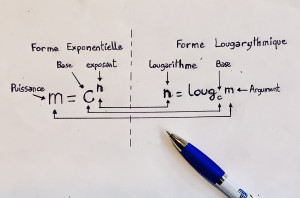 Forme Exponentielle
Base exposant
Puissance
m = cⁿ
Forme Lougarythmique
Lougarithme Base
n = loug꜀ m
Argument